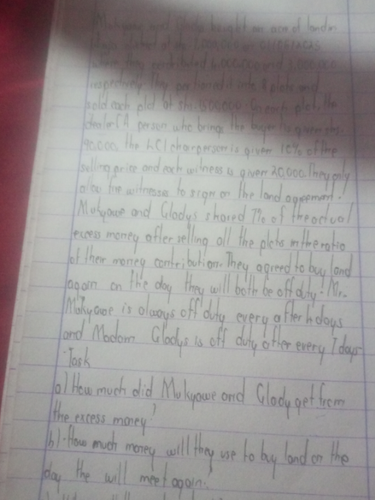 Mukyawe and Gladys bought an acre of land in
where they contributed 4,000,000 and 3,000,000
respectively. They portioned it into 8 plots and
sold each plot at shs. 1,500,000. On each plot, the
dealer (A person who brings the buyer is given shs.
90,000, the LC1 chairperson is given 10% of the
selling price and each witness is given 20,000. They only
witnesses to sign on the land agreement.
Mukyawe and Gladys shared 7% of the actual
excess money after selling all the plots in the ratio
of their money contribution. They agreed to buy land
again on the day they will both be off duty. Mr.
Mukyawe is always off duty every after 4 days
and Madam Gladys is off duty after every 7 days
Task
a) How much did Mukyawe and Glady get from
the excess money?
b) How much money will they use to buy land on the
day the will meet again?